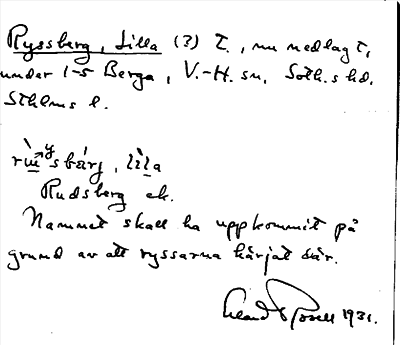 Ryssberg, Lilla (3) T., nu nedlagt,
under 1-5 Berga, V.-H. sn, Soth.s hd.
Sthlms l.
Rudsberg ek.
Namnet skall ha uppkommit på
grund av att ryssarna härjat där.
1931.